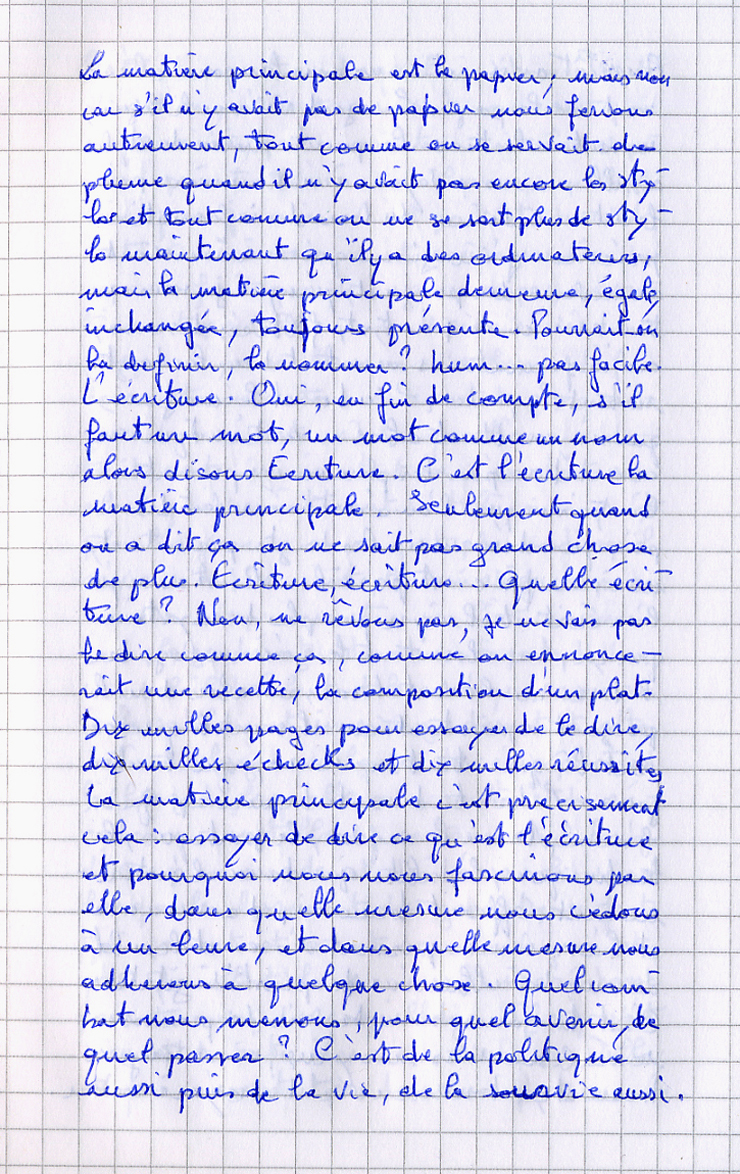 La matière principale est le papier, mais non
car s'il n'y avait pas de papier nous ferions
autrement, tout comme on se servait de
plume quand il n'y avait pas encore les sty-
los et tout comme on ne se sert plus de sty-
lo maintenant qu'il y a des ordinateurs,
mais la matière principale demeure, égale,
inchangée, toujours présente. Pourrait on
la definir, la nommer ? hum... pas facile.
L'écriture. Oui, en fin de compte, s'il
faut un mot, un mot comme un nom
alors disons Ecriture. C'est l'écriture la
matière principale. Seulement quand
on a dit ça on ne sait pas grand chose
de plus. Ecriture, écriture... Quelle écri-
ture ? Non, ne rêvons pas, je ne vais pas
le dire comme ça, comme on ennonce-
rait une recette, la composition d'un plat.
Dix milles pages pour essayer de le dire,
dix milles échecks et dix milles réussites
La matière principale c'est precisement
cela : essayer de dire ce qu'est l'écriture
et pourquoi nous nous fascinons par
elle, dans quelle mesure nous cèdons
à un leurre, et dans quelle mesure nous
adherens à quelque chose. Quel com-
bat nous menons, pour quel avenir, de
quel passer ? C'est de la politique
aussi puis de la vie, de la souvie aussi.